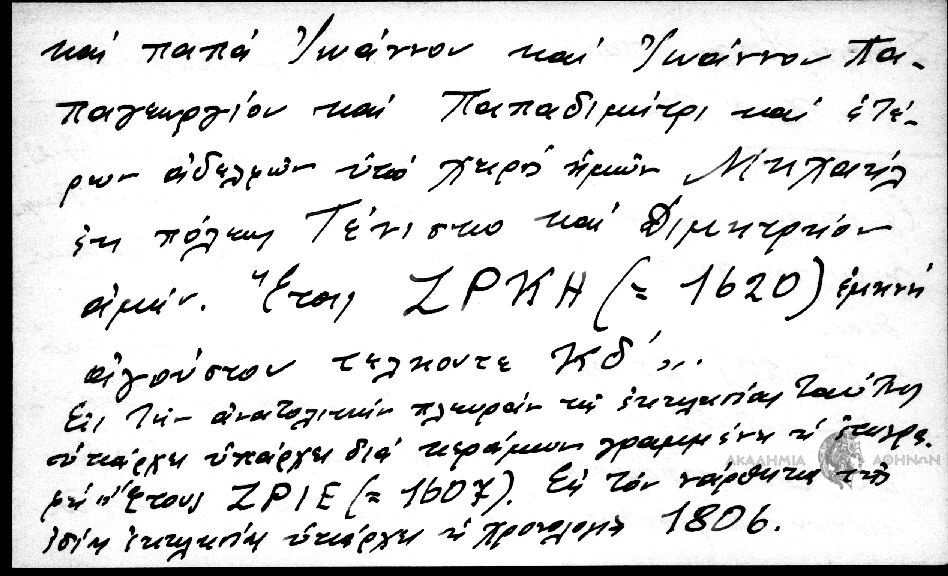 καί παπά Ἰωάννου καί Ἰωάννου Πα-
παγεωργίου καί Παπαδιμίτρι καί ἑτέ-
ρων ἀδελφῶν ὑπό χειρό ἡμῶν Μιχαήλ
ἐκ πόλεως Τένιστκο καί Διμητρίου
ἀμήν. Ἔτος ΖΡΚΗ (= 1620) ἐμηνή
αὐγούστου τελ Κδ΄,,.
Εἰς τήν ἀνατολικήν πλευράν τῆς ἐκκλησίας ταύτης
ὑπάρχει διά κεράμων γραμμένη ἡ
"Ἔτους ΖΡΙΕ (= 1607). Εἰς τόν νάρθηκα τῆς
ἐκκλησίας ὑπάρχει ἡ χρονολογία 1806.
ΑΚΑΔΗΜΙΑ ΑΘΗΝΩΝ